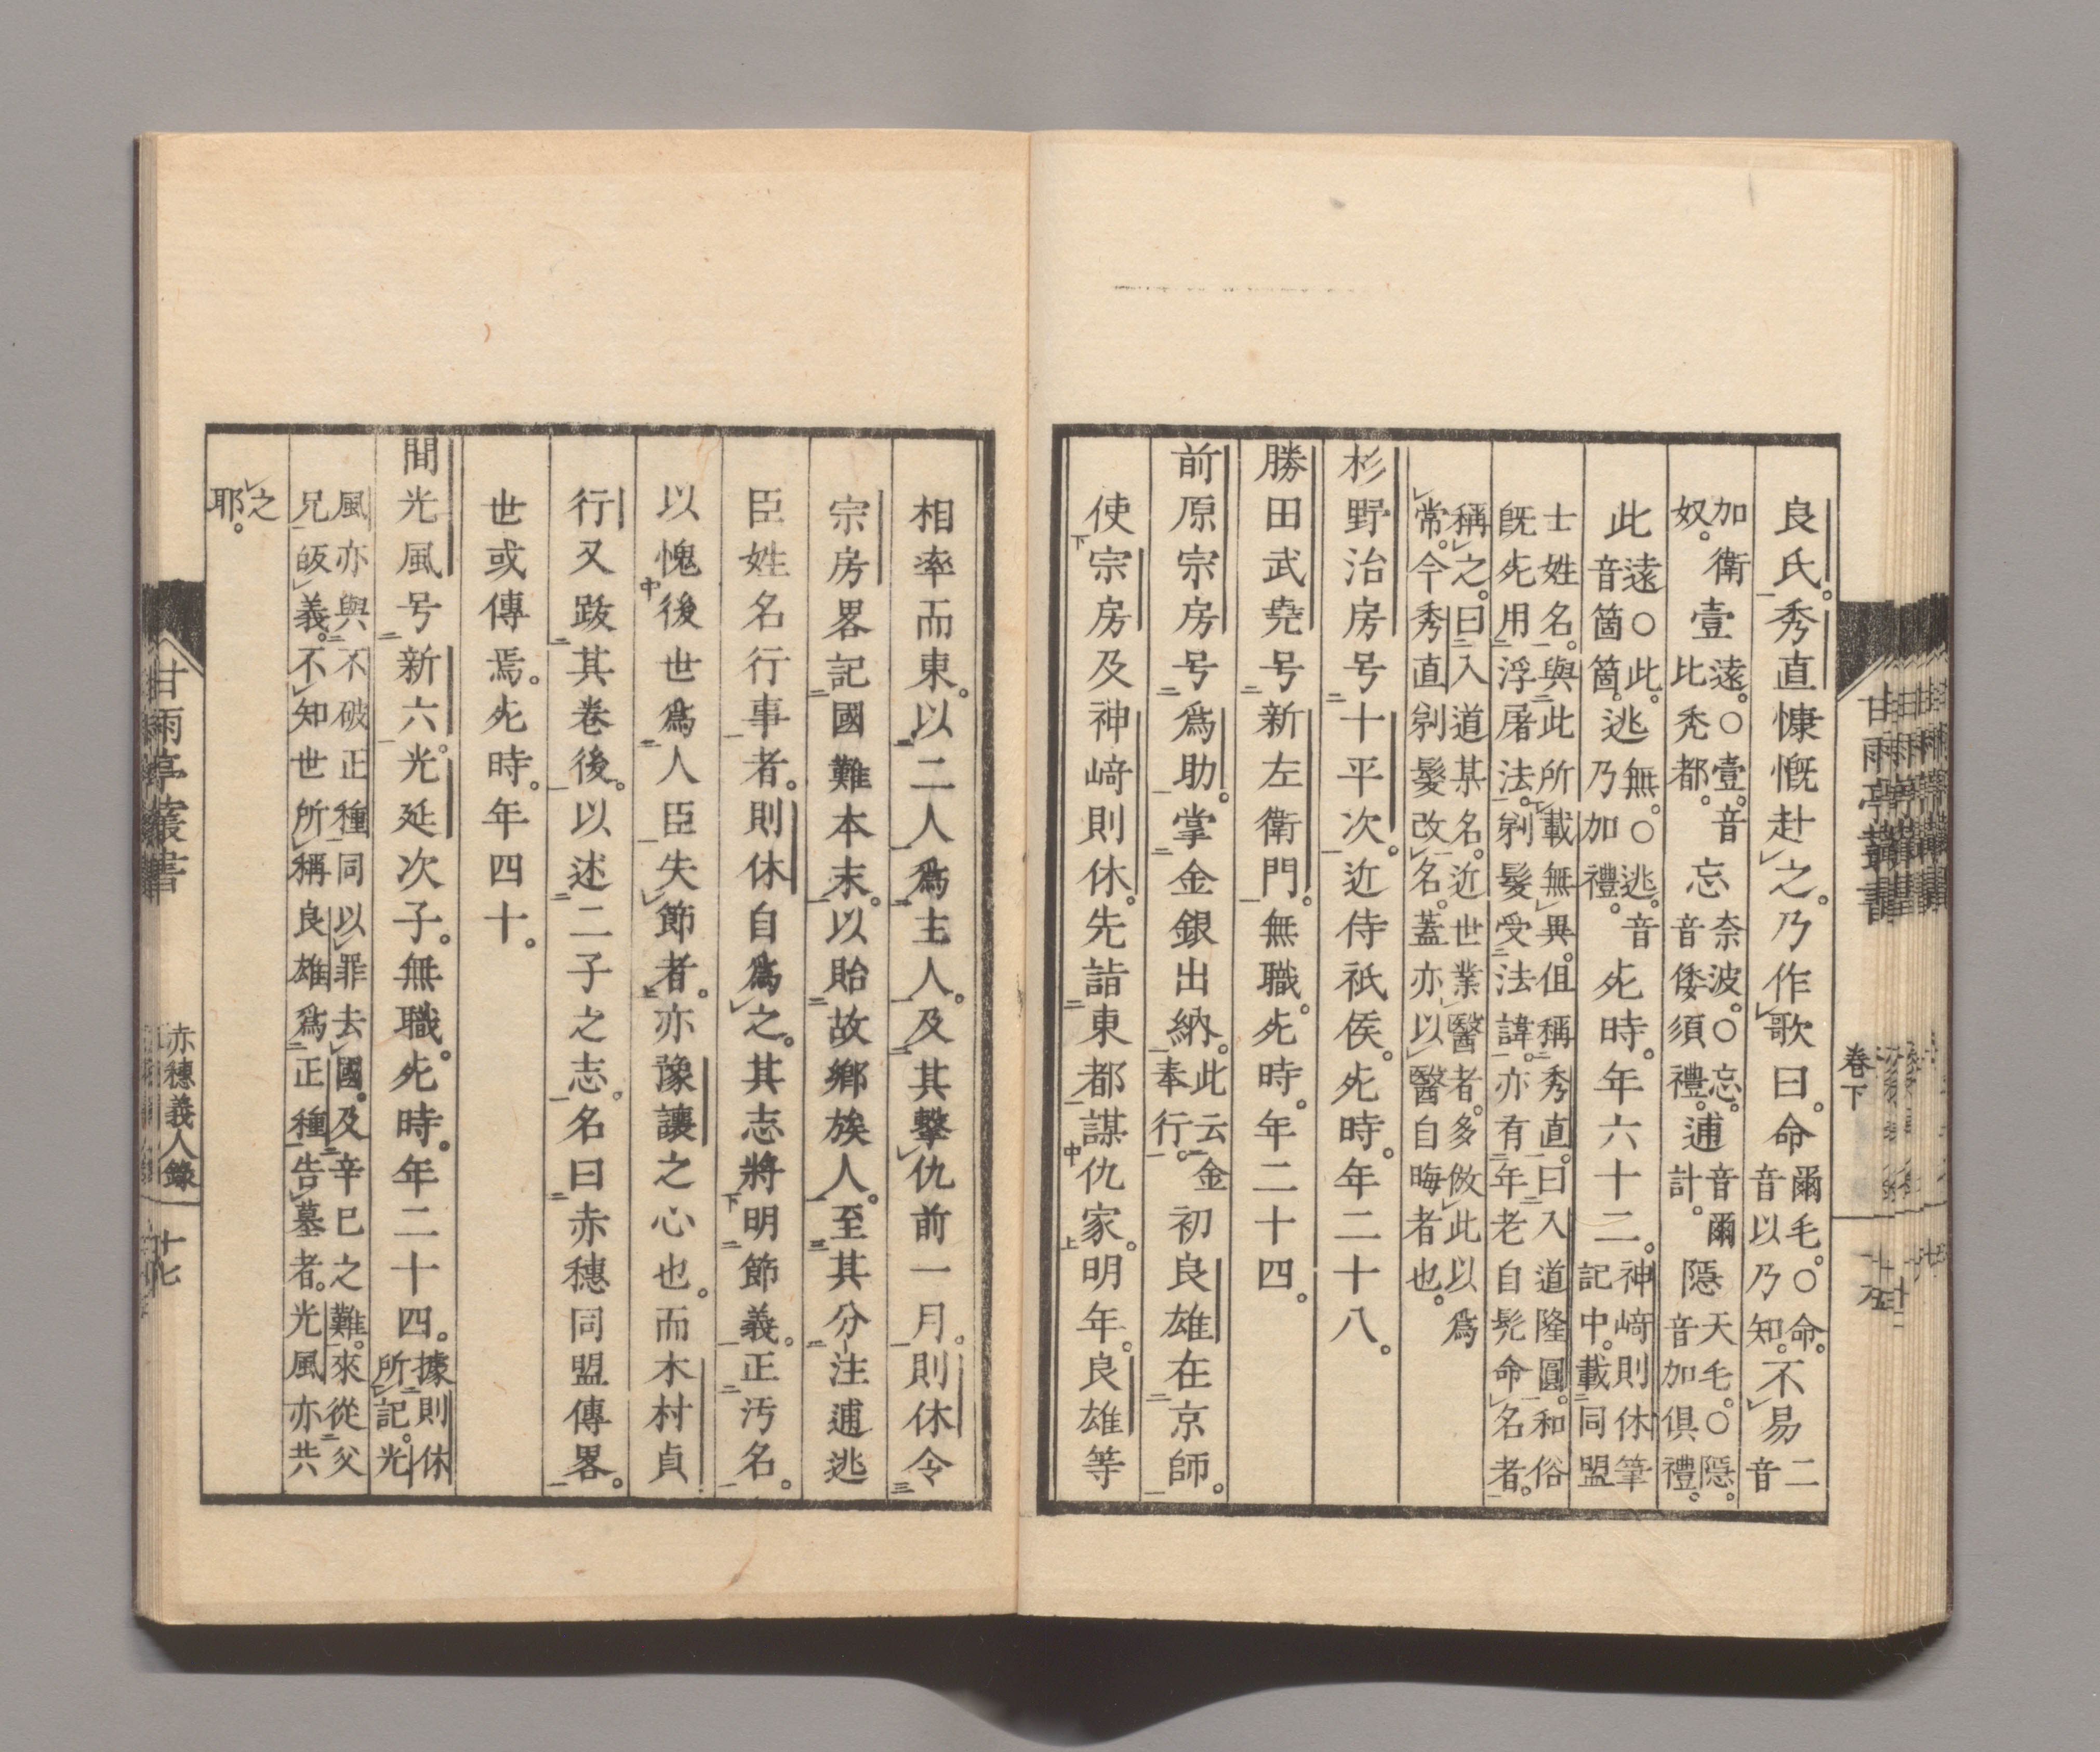 良氏。秀直慷慨赴之。乃作歌曰。命爾毛。○命。音以乃知。不易二音
加奴。衛壹遠。○壹。音比禿都。忘奈波。○忘。音倭須禮。逋音爾計。隱天毛。○隱。音加倶禮。
此遠。○此。音箇箇。逃無。○逃。音乃加禮。死時。年六十二。神﨑則休筆記中。載同盟
士姓名。與此所載無異。但稱秀直。曰入道隆圓。和俗
既死用浮屠法。剃髮受法諱。亦有年老自髠命名者。
稱之。曰入道某名。近世業醫者。多倣此以爲
常。今秀直剃髮改名。蓋亦以醫自晦者也。
杉野治房号十平次。近侍祇侯。死時。年二十八。
勝田武堯号新左衛門。無職。死時。年二十四。
前原宗房号爲助。掌金銀出納。此云金奉行。初良雄在京師。
使宗房及神﨑則休。先詣東都謀仇家。明年。良雄等
甘雨亭叢書 卷下
相率而東。以二人爲主人。及其擊仇前一月。則休令
宗房畧記國難本末。以貽故鄉族人。至其分注逋逃
臣姓名行事者。則休自爲之。其志將明節義。正汚名。
以愧後世爲人臣失節者。亦豫讓之心也。而木村貞
行又跋其卷後。以述二子之志。名曰赤穗同盟傳畧。
世或傳焉。死時。年四十。
間光風号新六。光延次子。無職。死時。年二十四。據則休所記。光
風亦與不破正種同以罪去國。及辛巳之難。來從父
兄皈義。不知世所稱良雄爲正種告墓者。光風亦共
之耶。
甘雨亭叢書 赤穗義人錄 十七